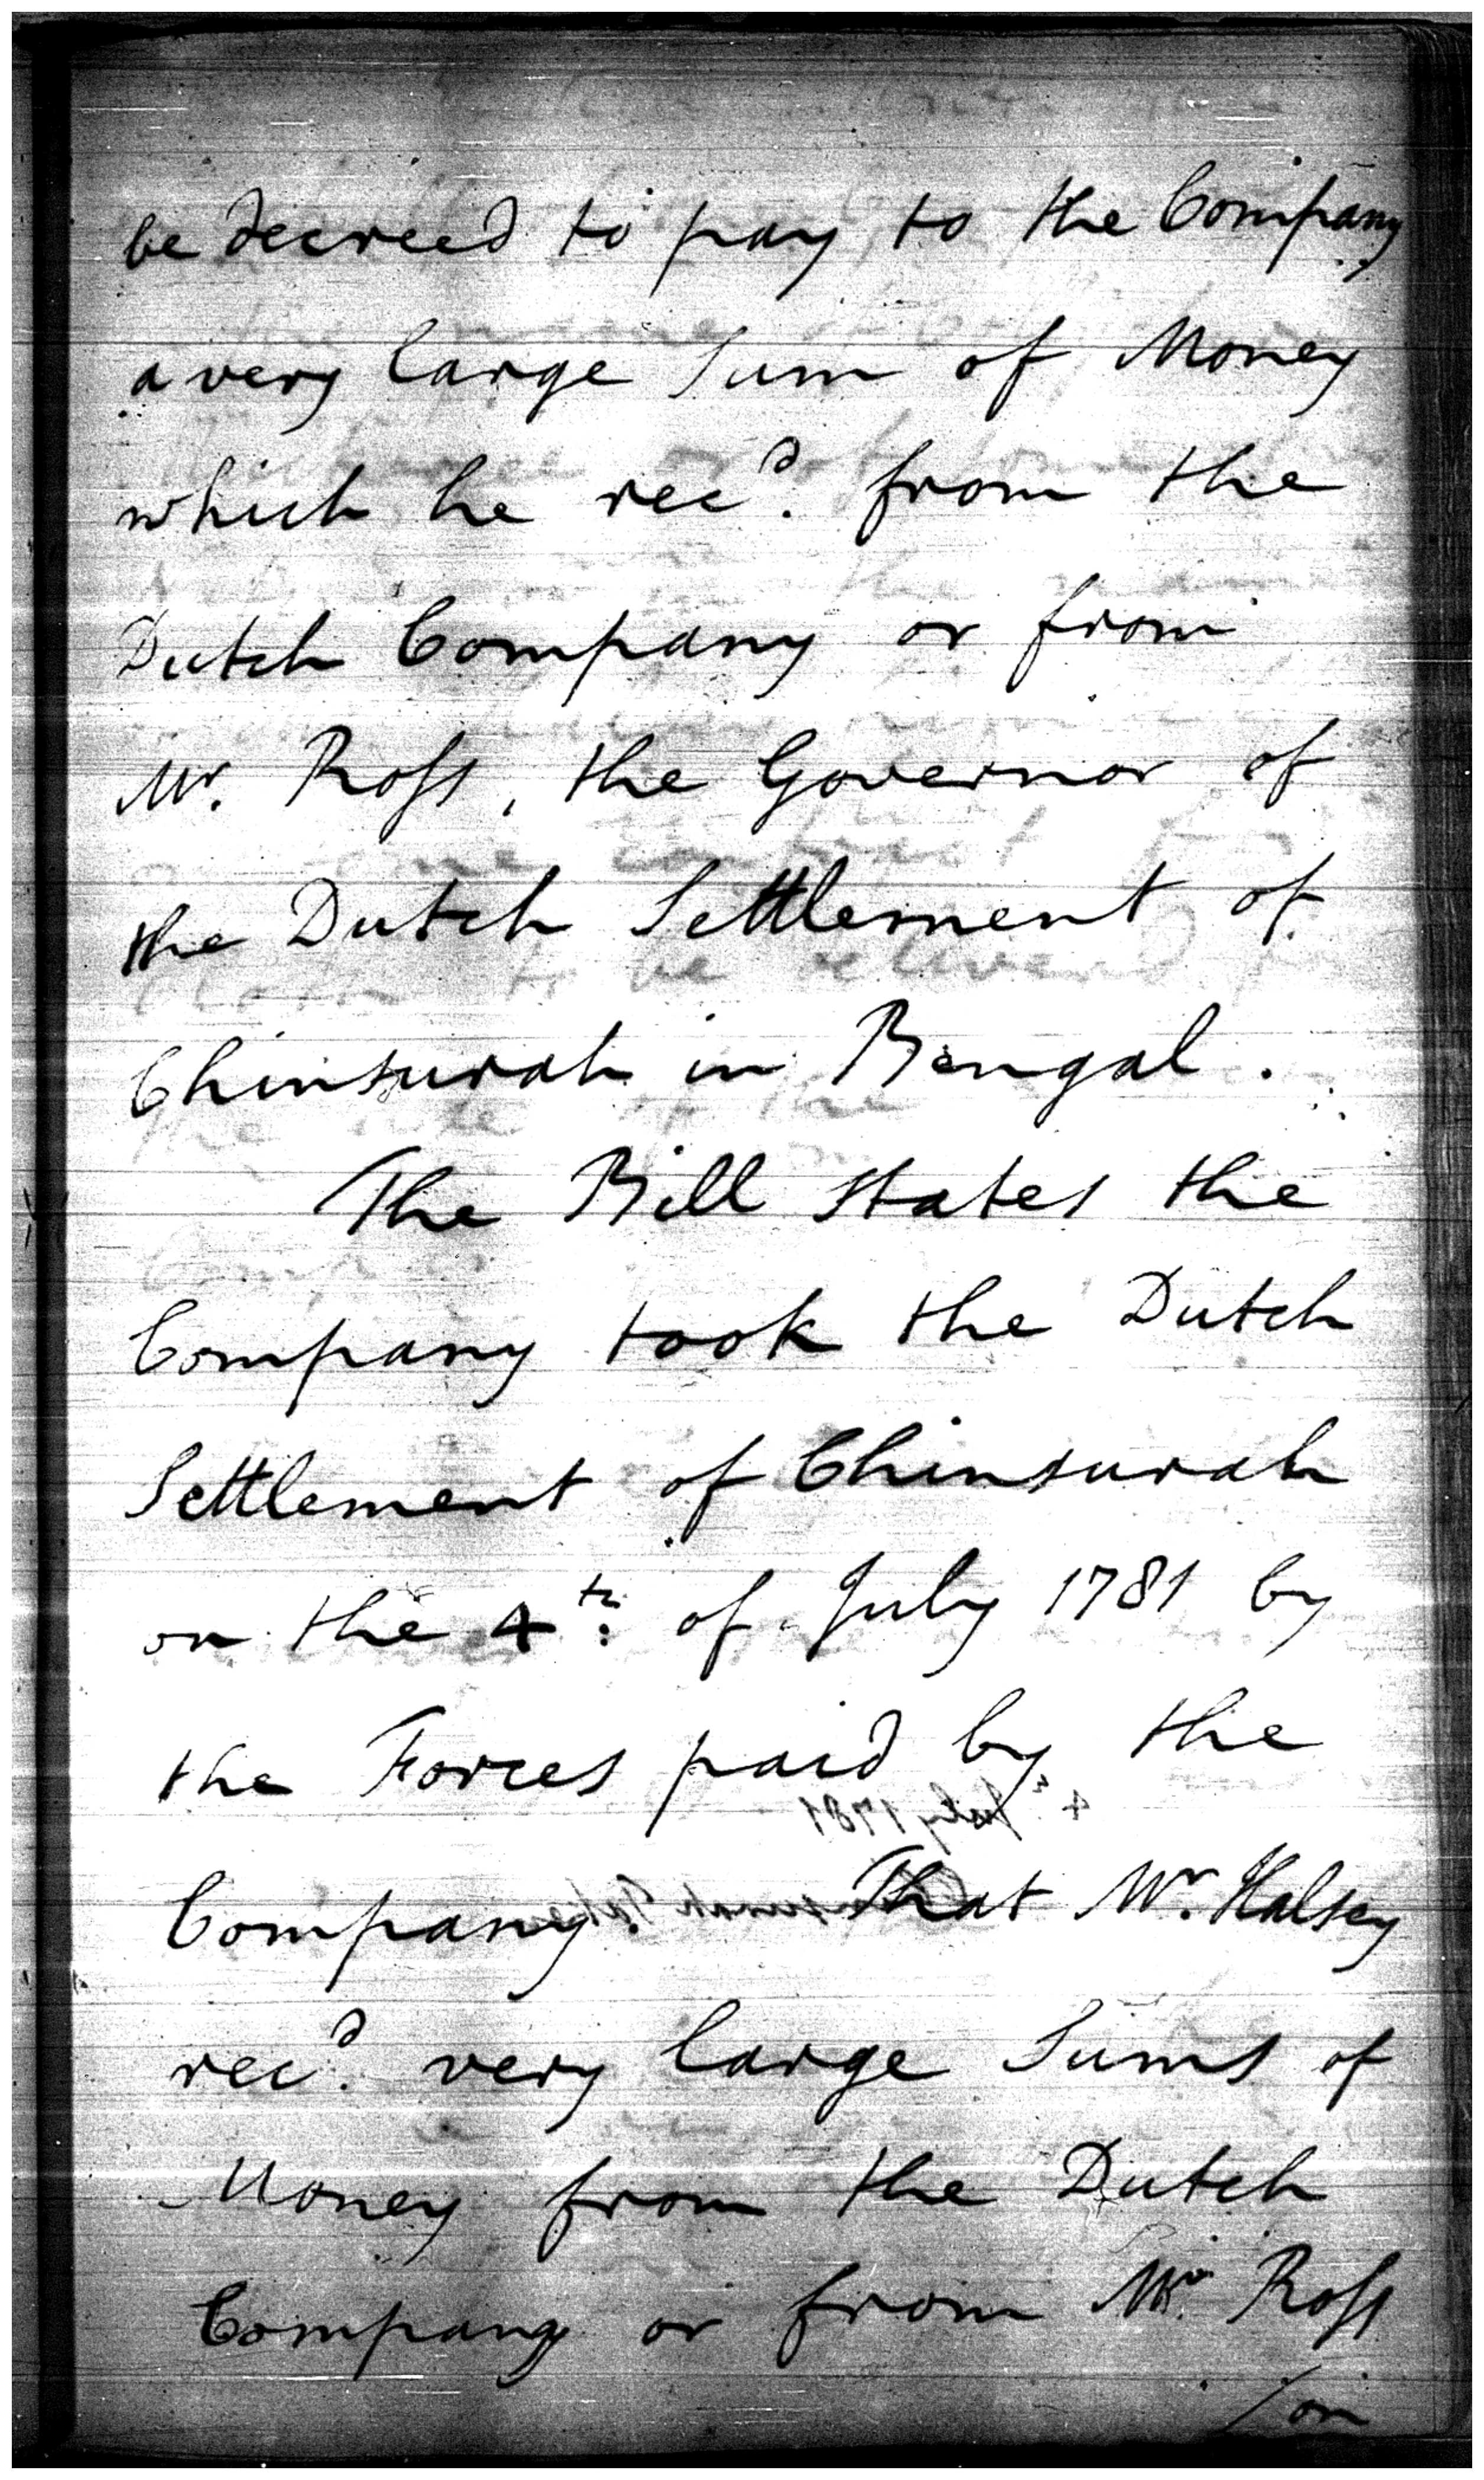 be decreed to pay to the Company
a very large Sum of Money
which he rec.d from the
Dutch Company or from
Mr. Ross, the Governor of
the Dutch Settlement of
Chinsurah in Bengal.
The Bill states the
Company took the Dutch
Settlement of Chinsurah
on the 4th. of July 1781 by
the Forces paid by the
Company. That Mr. Halsey
rec.d very large Sums of
Money from the Dutch
Company or from Mr. Ross
/on